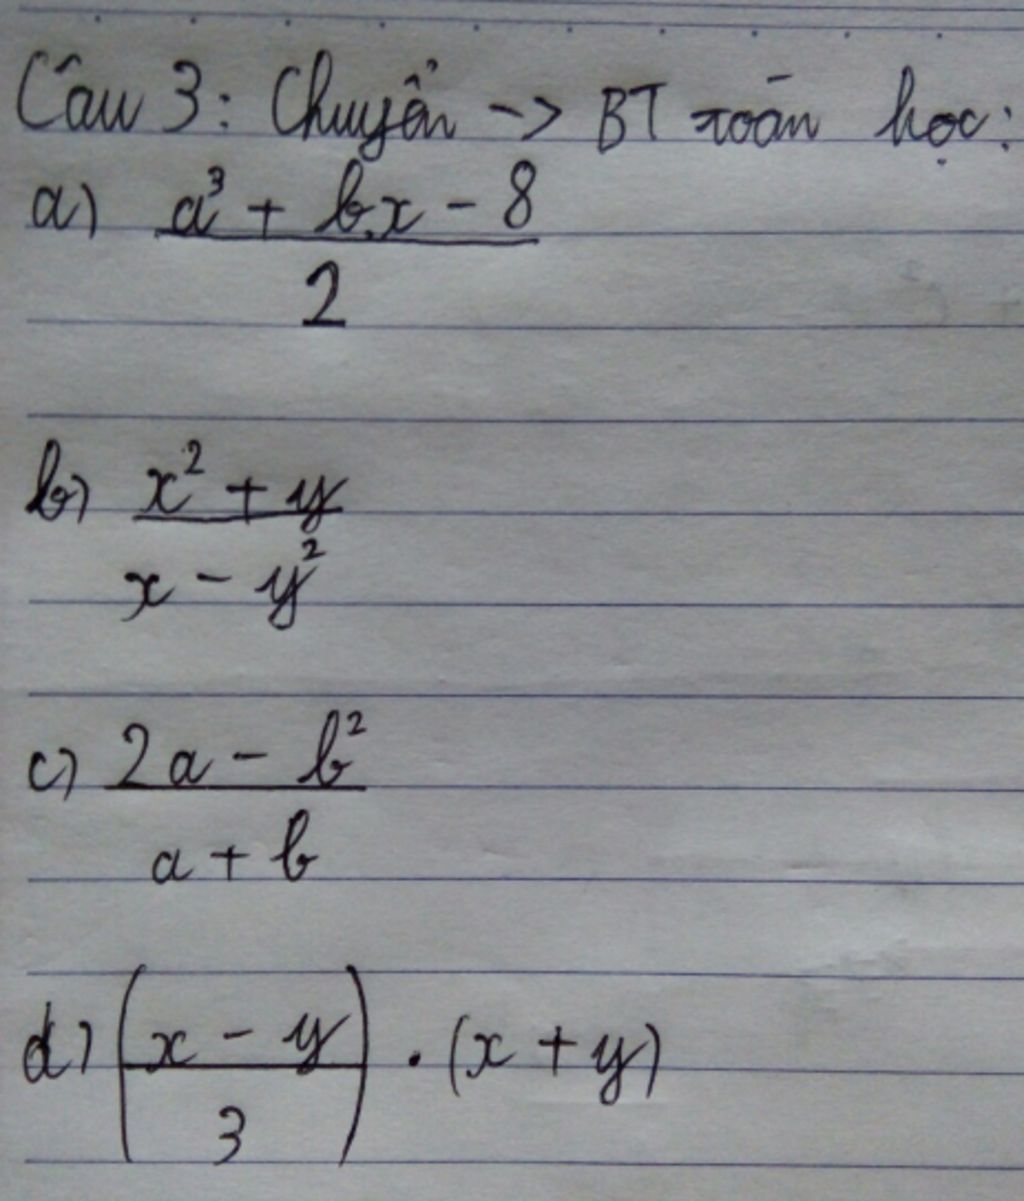 Câu 3: Chuyển -> BT toán học:
a) a³ + b.x - 8
2
b) x² + y
x - y²
c) 2a - b²
a + b
d) (x - y) . (x + y)
3